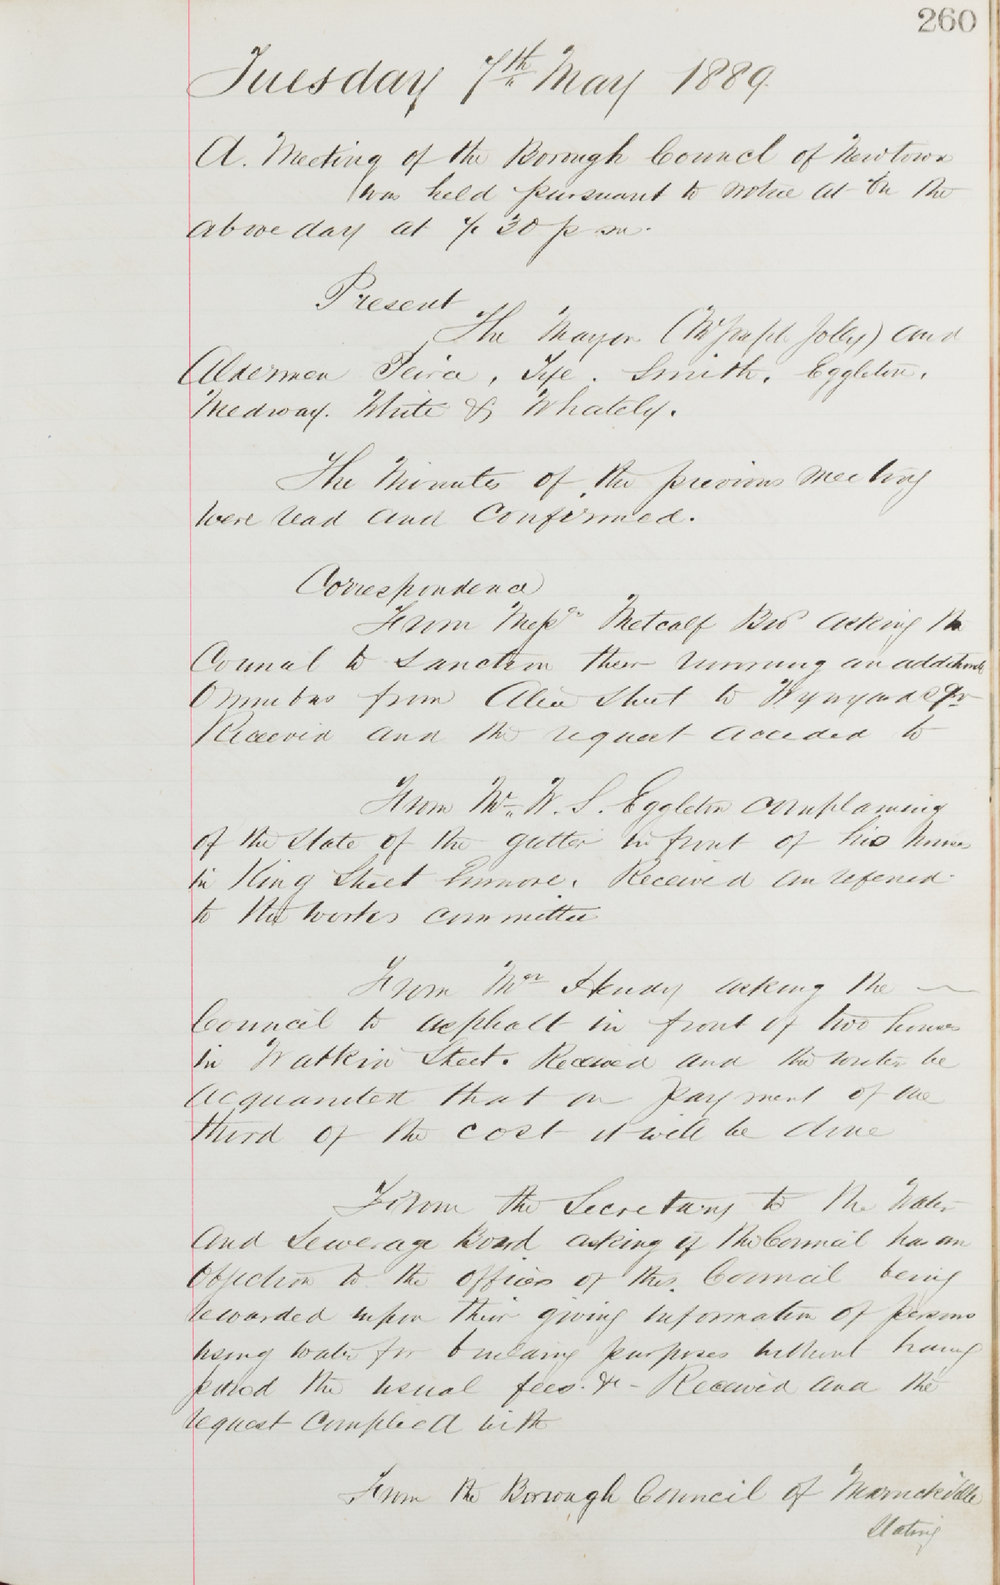 260
Tuesday 7th May 1889.
A. Meeting of the Borough Council of Newtown
was held pursuant to notice at on the
above day at 7.30 p m.
Present
The Mayor (Mr Joseph Jolly) and
Aldermen Teira, Tye. Smith. Eggleton,
Medway. White & Whately.
The Minutes of the previous meeting
were read and confirmed.
Correspondence
From Messrs Metcalf Bros asking the
Council to sanction their running an additional
Omnibus from Alice Street to Wynyard Sqr
Received and the request acceded to
From Mr. W. S. Eggleton complaining
of the state of the gutter in front of his house
in King Street Enmore. Received an refered
to the works committee
From Mr Hendy asking the
Council to asphalt in front of two houses
in Watkin Street. Received and the writer be
acquainted that on payment of one
third of the cost it will be done
From the Secretary to the Water
and Sewerage Board asking if the Council has an
objection to the officers of this Council being
rewarded upon their giving information of persons
using water for building purposes without having
paid the usual fees. &c - Received and the
request complied with
From the Borough Council of Marrickville
Stating